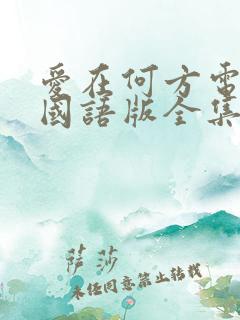 愛在何方電
國語版全集
薩莎
未經同意禁止轉載